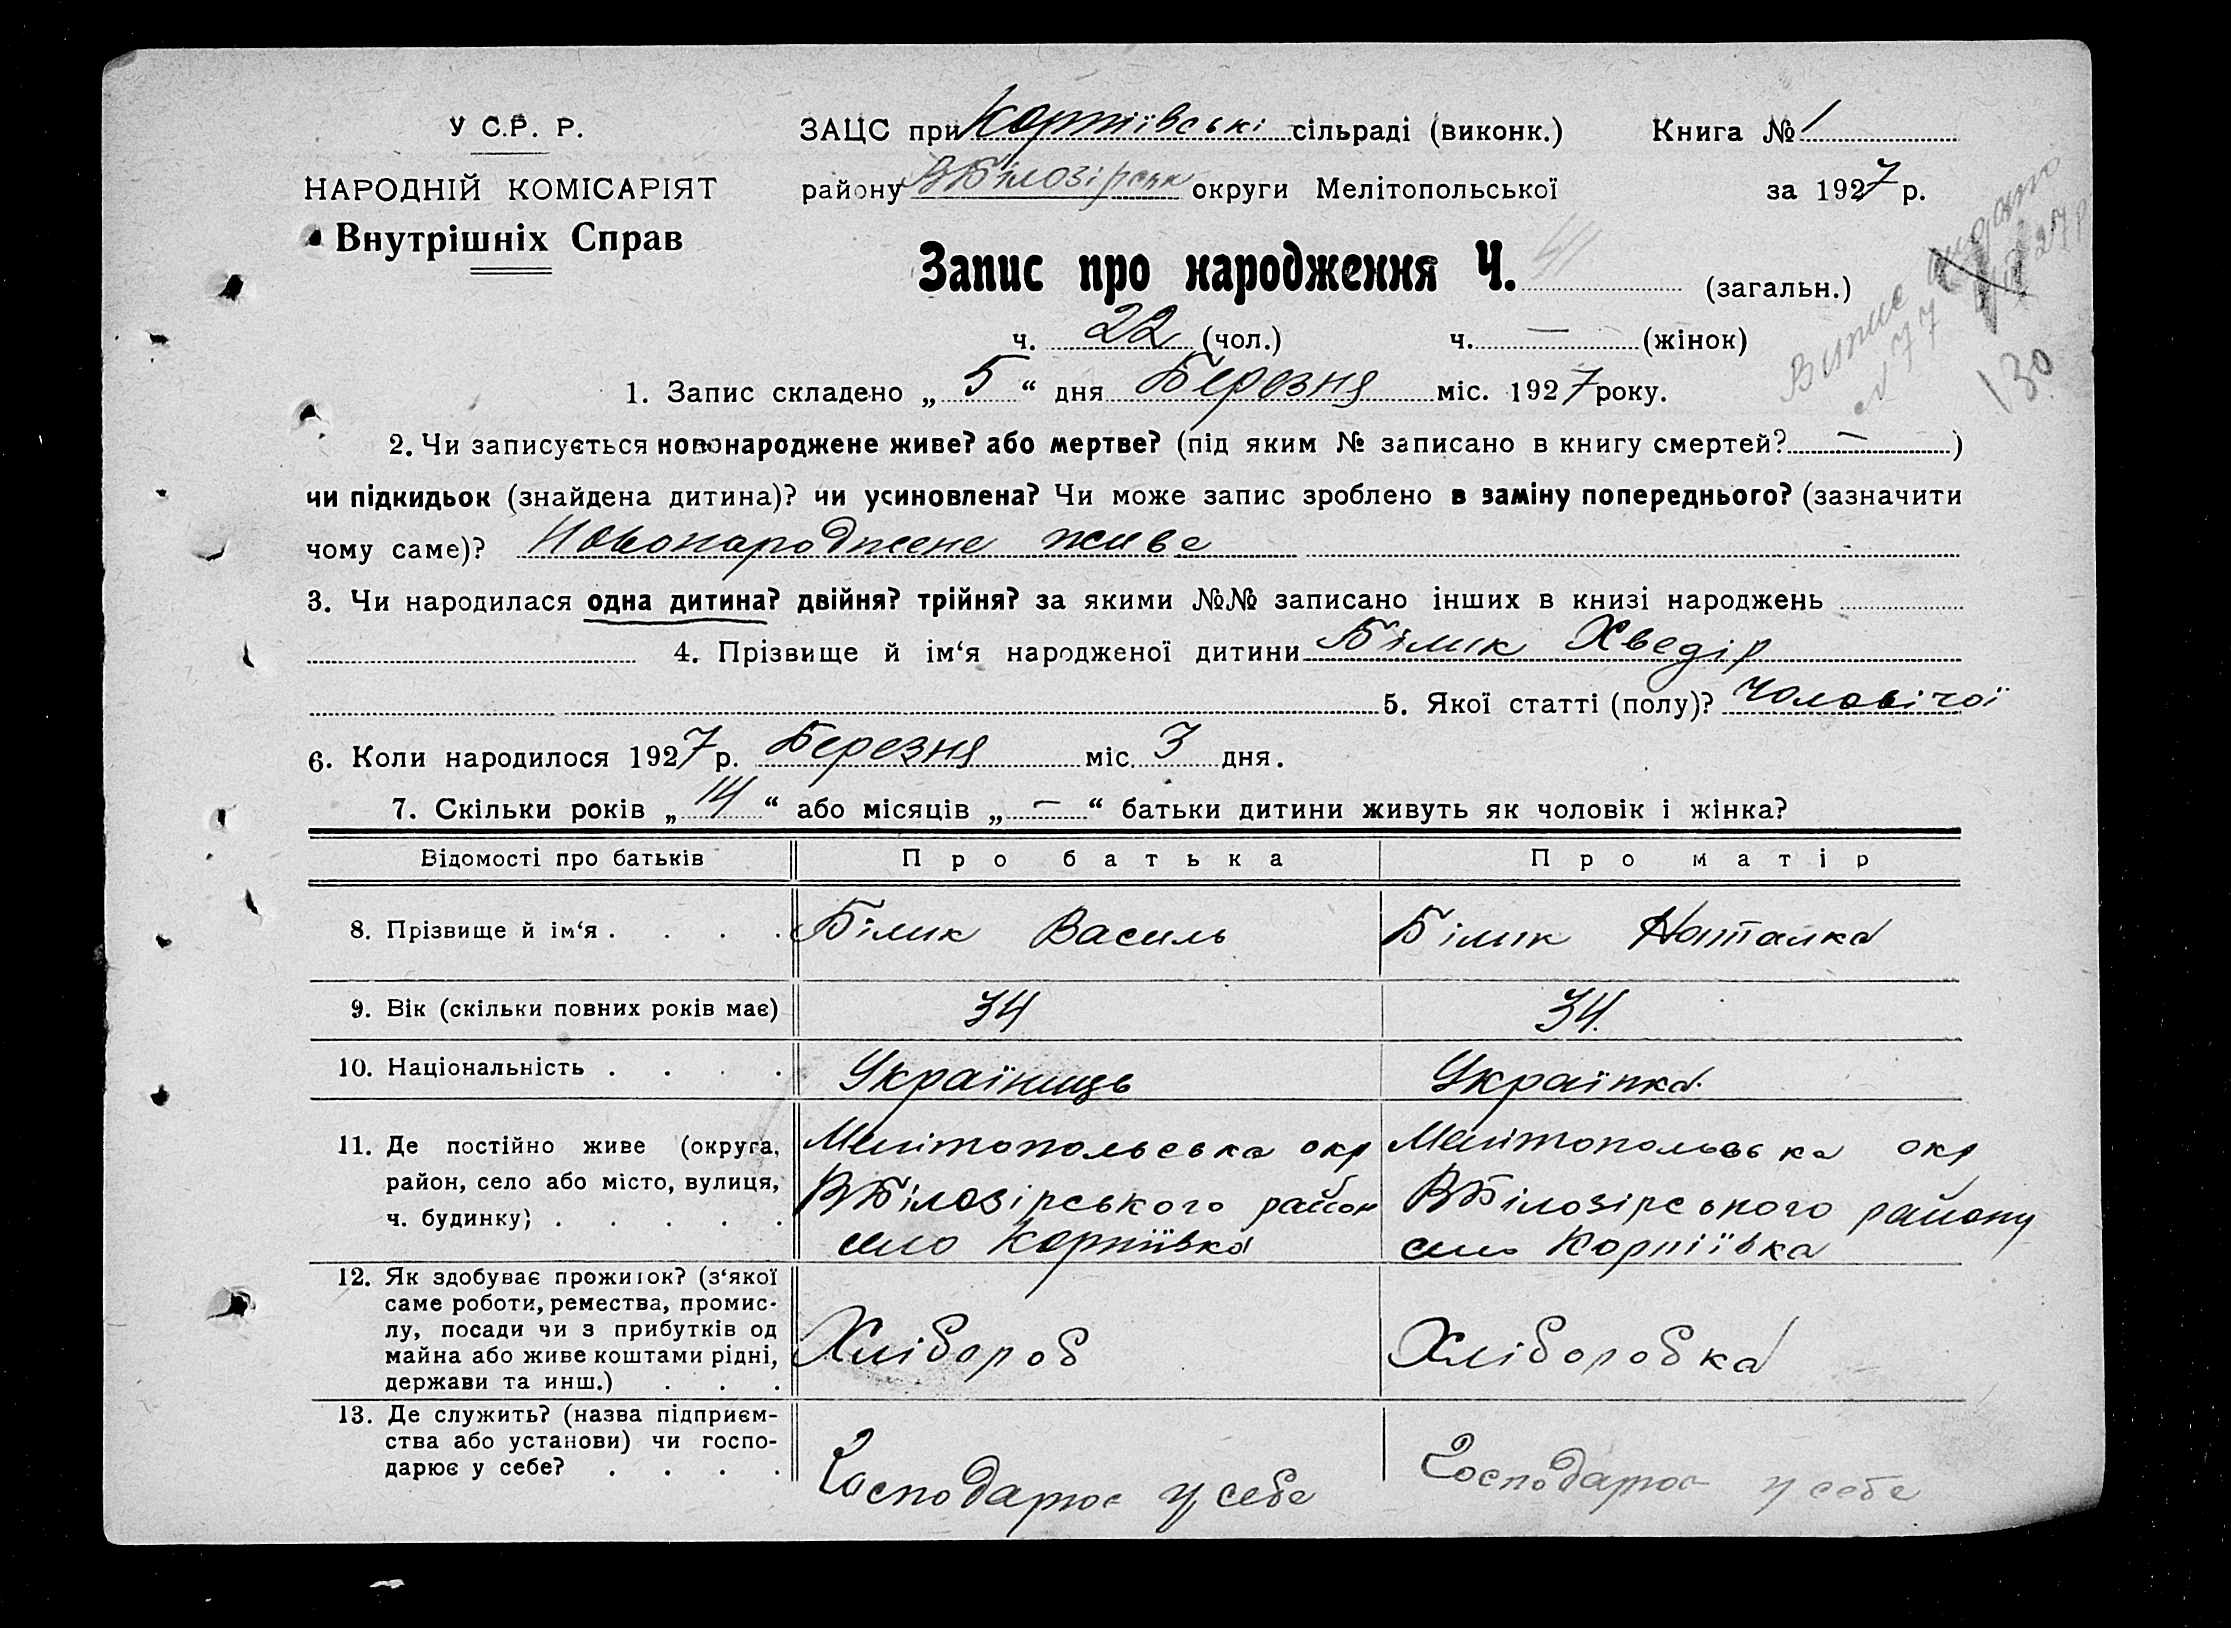 У С.Р. Р.
НАРОДНІЙ КОМІСАРІЯТ
Внутрішніх Справ
ЗАЦС при Корніївські сільраді (виконк.) Книга № 1
району ВБілозірськ округи Мелітопольської за 1927 р.
Запис про народження Ч. 41 (загальн.)
ч. 22 (чол.) ч. — (жінок)
Випис видано
№ 77
130
1. Запис складено „ 5 “ дня Березня міс. 1927 року.
2. Чи записується новонароджене живе? або мертве? (під яким № записано в книгу смертей? — )
чи підкидьок (знайдена дитина)? чи усиновлена? Чи може запис зроблено в заміну попереднього? (зазначити
чому саме)? Новонароджене живе
3. Чи народилася одна дитина? двійня? трійня? за якими №№ записано інших в книзі народжень
4. Прізвище й ім‘я народженої дитини Білик Хведір
5. Якої статті (полу)? Чоловічої
6. Коли народилося 1927 р. Березня міс. 3 дня.
7. Скільки років „ 14 “ або місяців „ — “ батьки дитини живуть як чоловік і жінка?
Відомості про батьків Про батька Про матір
8. Прізвище й ім‘я . . . . Білик Василь Білик Наталка
9. Вік (скільки повних років має) 34 34.
10. Національність . . . . Українець Українка.
11. Де постійно живе (округа,
район, село або місто, вулиця,
ч. будинку) . . . . .
Мелітопольська окр
ВБілозірського район
село Корніївка
Мелітопольська окр
ВБілозірського району
село Корніївка
12. Як здобуває прожиток? (з‘якої
саме роботи, ремества, промис-
лу, посади чи з прибутків од
майна або живе коштами рідні,
держави та инш.) . . .
Хлібороб
Хліборобка
13. Де служить? (назва підприєм-
ства або установи) чи госпо-
дарює у себе? . . . .
Господарює у себе
Господарює у себе